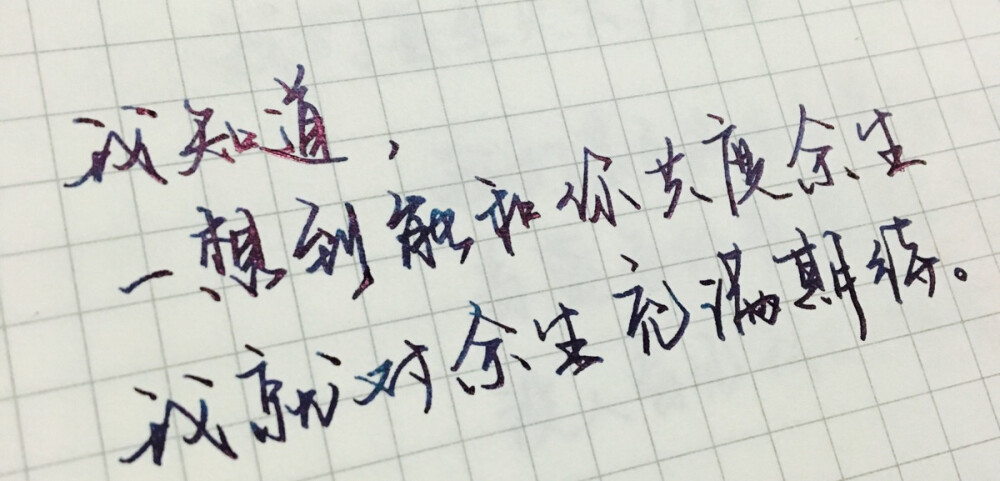 我知道，
一想到能和你共度余生
我就对余生充满期待。